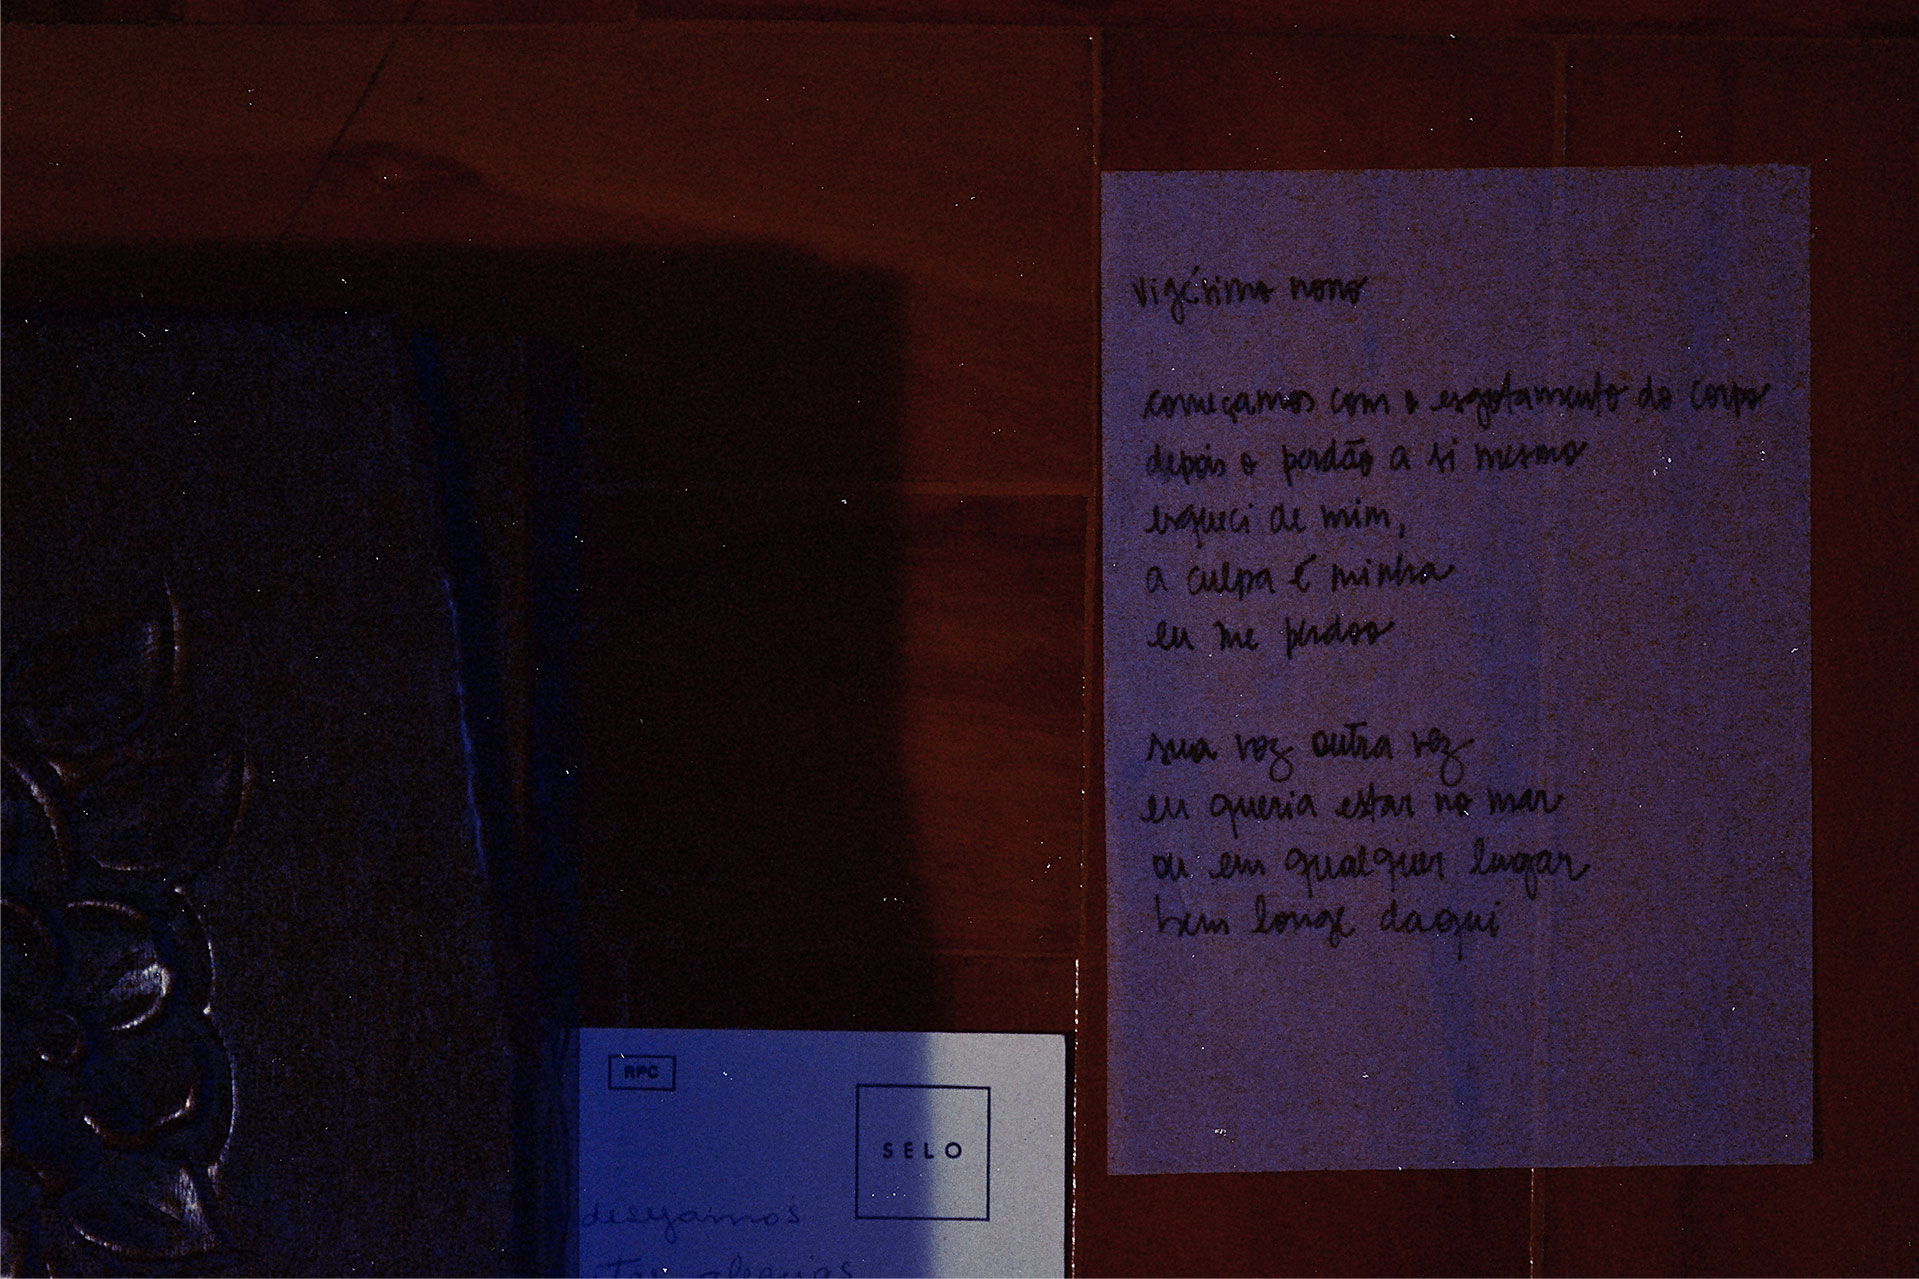 vigésimo nono
começamos com o esgotamento do corpo
depois o perdão a si mesmo
esqueci de mim,
a culpa é minha
eu me perdoo
sua voz outra vez
eu queria estar no mar
ou em qualquer lugar
bem longe daqui
RPC
SELO
desejamos
alegrias